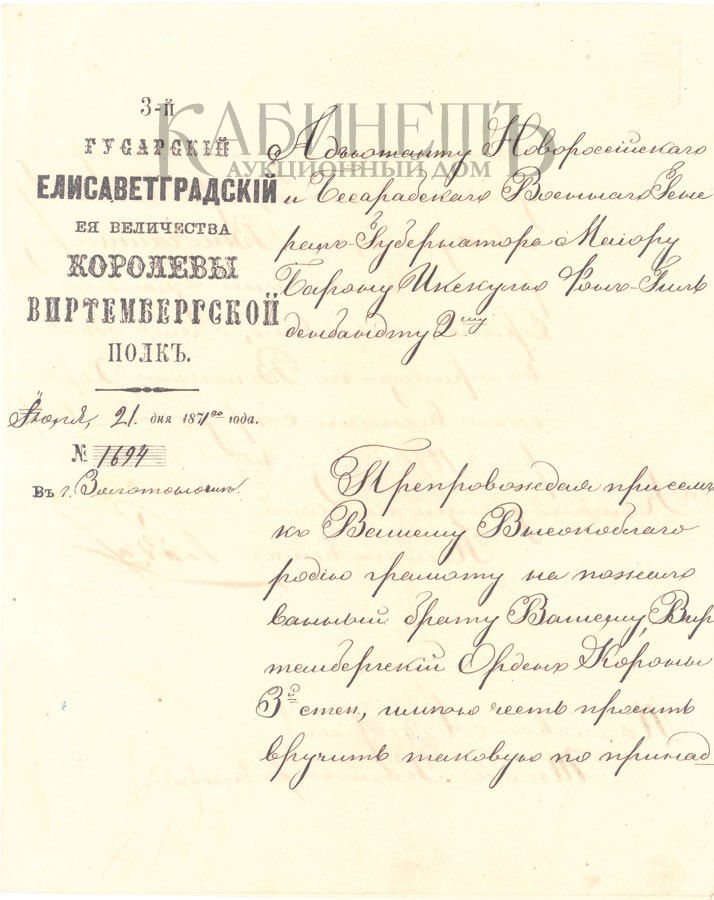 КАБИНЕТЪ
АУКЦИОННЫЙ ДОМ
3-Й
ГУСАРСКІЙ
ЕЛИСАВЕТГРАДСКІЙ
ЕЯ ВЕЛИЧЕСТВА
КОРОЛЕВЫ
ВИРТЕМБЕРГСКОЙ
ПОЛКЪ.
21. дня 1871го года.
№ 1694
Въ г.
Адъютанту Новороссійскаго
и Бессарабскаго Военнаго Гене
ралъ-Губернатора Маіору
Барону Икскулю фонъ-Гиль
денбандту 2му
Препровождая присемъ
къ Вашему Высокоблаго
родію грамоту на пожало
ванный брату Вашему, Вир
тембергскій Орденъ Короны
3й степ, имѣю честь просить
вручить таковую по принад